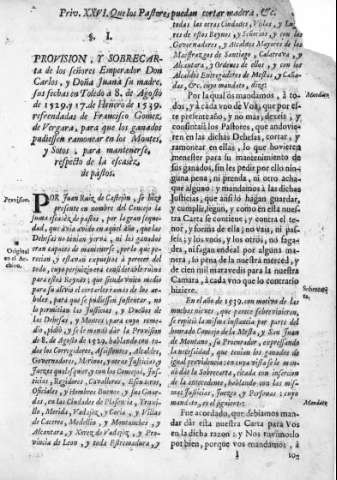 Priv. XXVI. Que los Pastores puedan cortar madera, &c.
§. I.
PROVISION, Y SOBRECAR-
ta de los señores Emperador Don
Carlos, y Doña Juana su madre,
sus fechas en Toledo à 8. de Agosto
de 1529. y 17. de Febrero de 1539.
refrendadas de Francisco Gomez
de Vergara, para que los ganados
pudiessen ramonear en los Montes,
y Sotos, para mantenerse,
respecto de la escaséz
de pastos.
Provision.
Original
en el Ar-
chivo.
POR Juan Ruiz de Castejon, se hizo
presente en nombre del Concejo la
suma escaséz de pastos, por la gran seque-
dad, que avia avido en aquel año, y que
las Dehesas no tenian yerva, ni los ganados
eran capaces de mantenerse, por lo que pe-
recian, y estavan expuestos à perecer del
todo, cuyo perjuizio era considerable ruina
para estos Reynos; y que siendo unico medio
para su alivio el cortarles ramas de los ar-
boles, para que se pudiessen sustentar, no
lo permitian las Justicias, y Dueños de
las Dehesas, y Montes; para cuyo reme-
dio, pidiò, y se le mandò dar la Provision
de 8. de Agosto de 1529. hablando con to-
dos los Corregidores, Assistentes, Alcaldes,
Governadores, Merinos, y otras Justicias, y
Juezes qualesquier, y con los Concejos, Jus-
ticias, Regidores, Cavalleros, Escuderos,
Oficiales, y Hombres Buenos, y sus Guar-
das, en las Ciudades de Plasencia, Truxi-
llo, Merida, Badajoz, y Coria, y Villas
de Caceres, Medellin, y Montanches, y
Alcantara, y Xerez de Badajoz, y Pro-
vincia de Leon, y toda Estremadura, y
todas las otras Ciudades, Villas, y Lu-
gares de estos Reynos, y Señorios, y con los
Governadores, y Alcaldes Mayores de los
Maestrazgos de Santiago, Calatrava, y
Alcantara, y Ordenes de ellos, y con los
Alcaldes Entregadores de Mestas, y Caña-
das, &c. cuyo mandato, dize:
Mandato.
Por la qual os mandamos, à to-
dos, y à cada uno de Vos, que por es-
te presente año, y no mas, dexeis, y
consintais los Pastores, que anduvie-
ren en las dichas Dehesas, cortar, y
ramonear en ellas, lo que huvieren
menester para su mantenimiento de
sus ganados, sin les pedir por ello nin-
guna pena, ni prenda, ni otro acha-
que alguno: y mandamos à las dichas
Justicias, que assi lo hagan guardar,
y cumplir, segun, y como en esta nues-
tra Carta se contiene; y contra el te-
nor, y forma de ella no vayan, ni pas-
sen; y los unos, y los otros, no faga-
des, ni fagan endeal por alguna ma-
nera, so pena de la nuestra merced, y
cien mil maravedis para la nuestra
Camara, à cada uno que lo contrario
hiziere.
En el año de 1539. con motivo de las
muchas nieves, que parece sobrevinieron, se
repitiò la misma instancia por parte del
honrado Concejo de la Mesta, y San Juan
de Montano, su Procurador, expressando
la necessidad, que tenian los ganados de
igual providencia: con cuya vista se man-
dò dàr la Sobrecarta, citada con inser-
cion de la antecedente, hablando con las mis-
mas Justicias, Juezes, y Personas; cuyo
mandato, es el siguiente.
Mandato.
Fue acordado, que debiamos man-
dar dàr esta nuestra Carta para Vos
en la dicha razon; y Nos tuvimoslo
por bien, porque vos mandamos, à